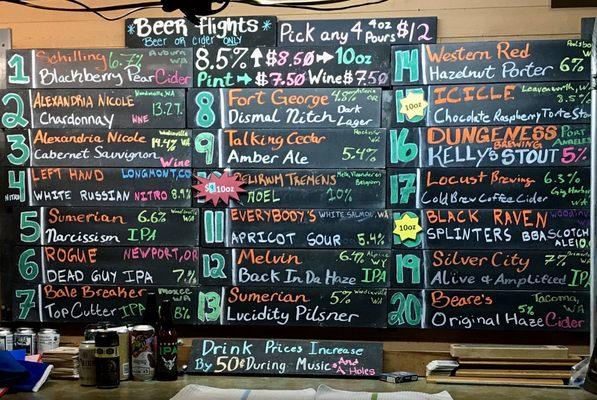 Beer flights
Beer or Cider Only
Pick any 4 4oz Pours $12
8.5% ↑ $8.50 → 10oz
Pint → $7.50 Wine $7.50
1 Schilling 6.7% Auburn WA
Blackberry Pear Cider
2 Alexandria Nicole 13.2%
Chardonnay Wine
3 Alexandria Nicole 14.4%
Cabernet Sauvignon Wine
4 Nitro Left Hand Longmont, CO
White Russian Nitro
5 Sumerian 6.6%
Narcissism IPA
6 Rogue Newport, OR
Dead Guy IPA 7%
7 Bale Breaker WA
Top Cutter IPA
8 Fort George OR
Dismal Nitch Dark Lager
9 Talking Cedar
Amber Ale 5.4%
10oz
Delirium Tremens Belgium
Noel 10%
11 Everybody's White Salmon, WA
Apricot Sour 5.4%
12 Melvin 6.4% Alpine WY
Back In Da Haze IPA
13 Sumerian 5% Woodinville WA
Lucidity Pilsner
14 Western Red Poulsbo WA
Hazelnut Porter 6%
10oz Icicle Leavenworth, W 8.5%
Chocolate Raspberry Torte Stout
16 Dungeness Brewing Port Angeles
Kelly's Stout 5%
17 Locust Brewing 6.3% Gig Harbor WA
Cold Brew Coffee Cider
10oz Black Raven
Splinters BBA Scotch Ale
19 Silver City 7%
Alive & Amplified IPA
20 Beare's 5% Tacoma, WA
Original Haze Cider
Drink Prices Increase
By 50¢ During Music *And A-Holes